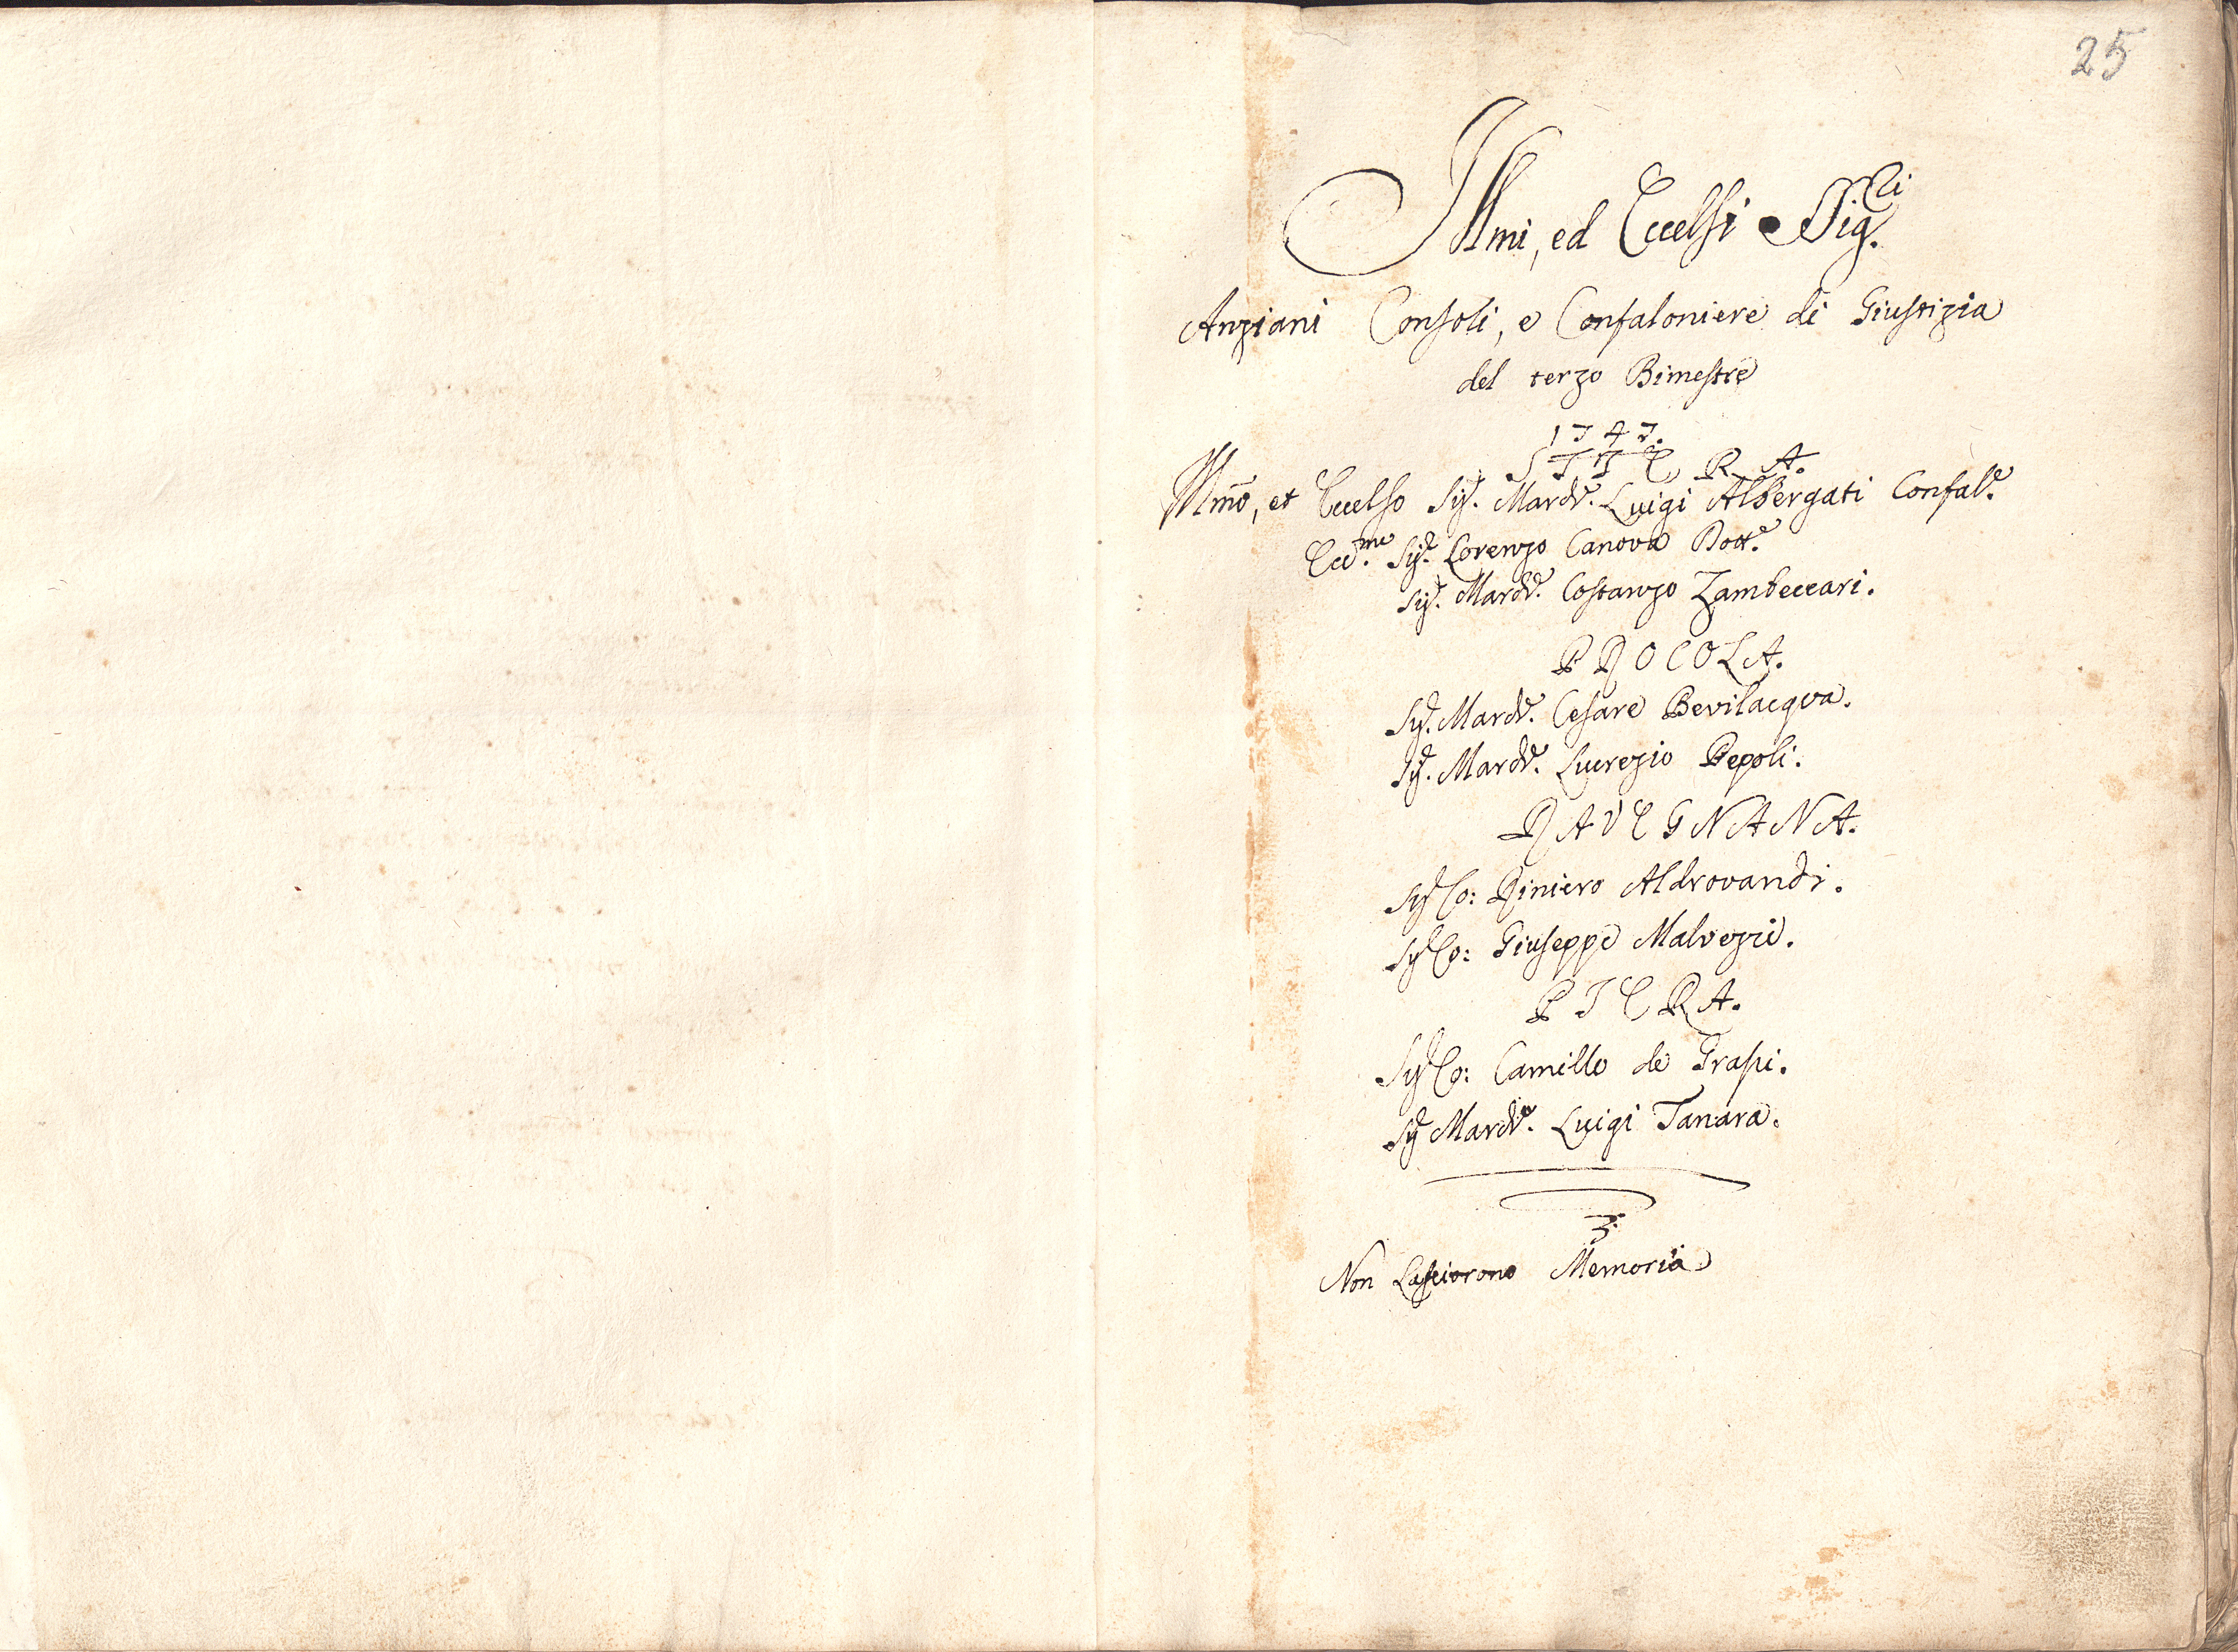 25
Illmi, ed Eccelsi Sig.ri
Anziani Consoli, e Confaloniere di Giustizia
del terzo Bimestre
1747.
STIERA.
Illmo, et Eccelso Sig.r March.e Luigi Albergati Confal.e
Ecc.mo Sig.r Lorenzo Canova Dott.e
Sig.r March.e Costanzo Zambeccari.
PROCOLA.
Sig.r March.e Cesare Bevilacqva.
Sig.r March.e Lucrezio Pepoli.
RAVEGNANA.
Sig.r Co: Riniero Aldrovandi.
Sig.r Co: Giuseppe Malvezzi.
PIERA.
Sig.r Co: Camillo de Grassi.
Sig.r March.e Luigi Tanara.
Non Lasciorono Memoria